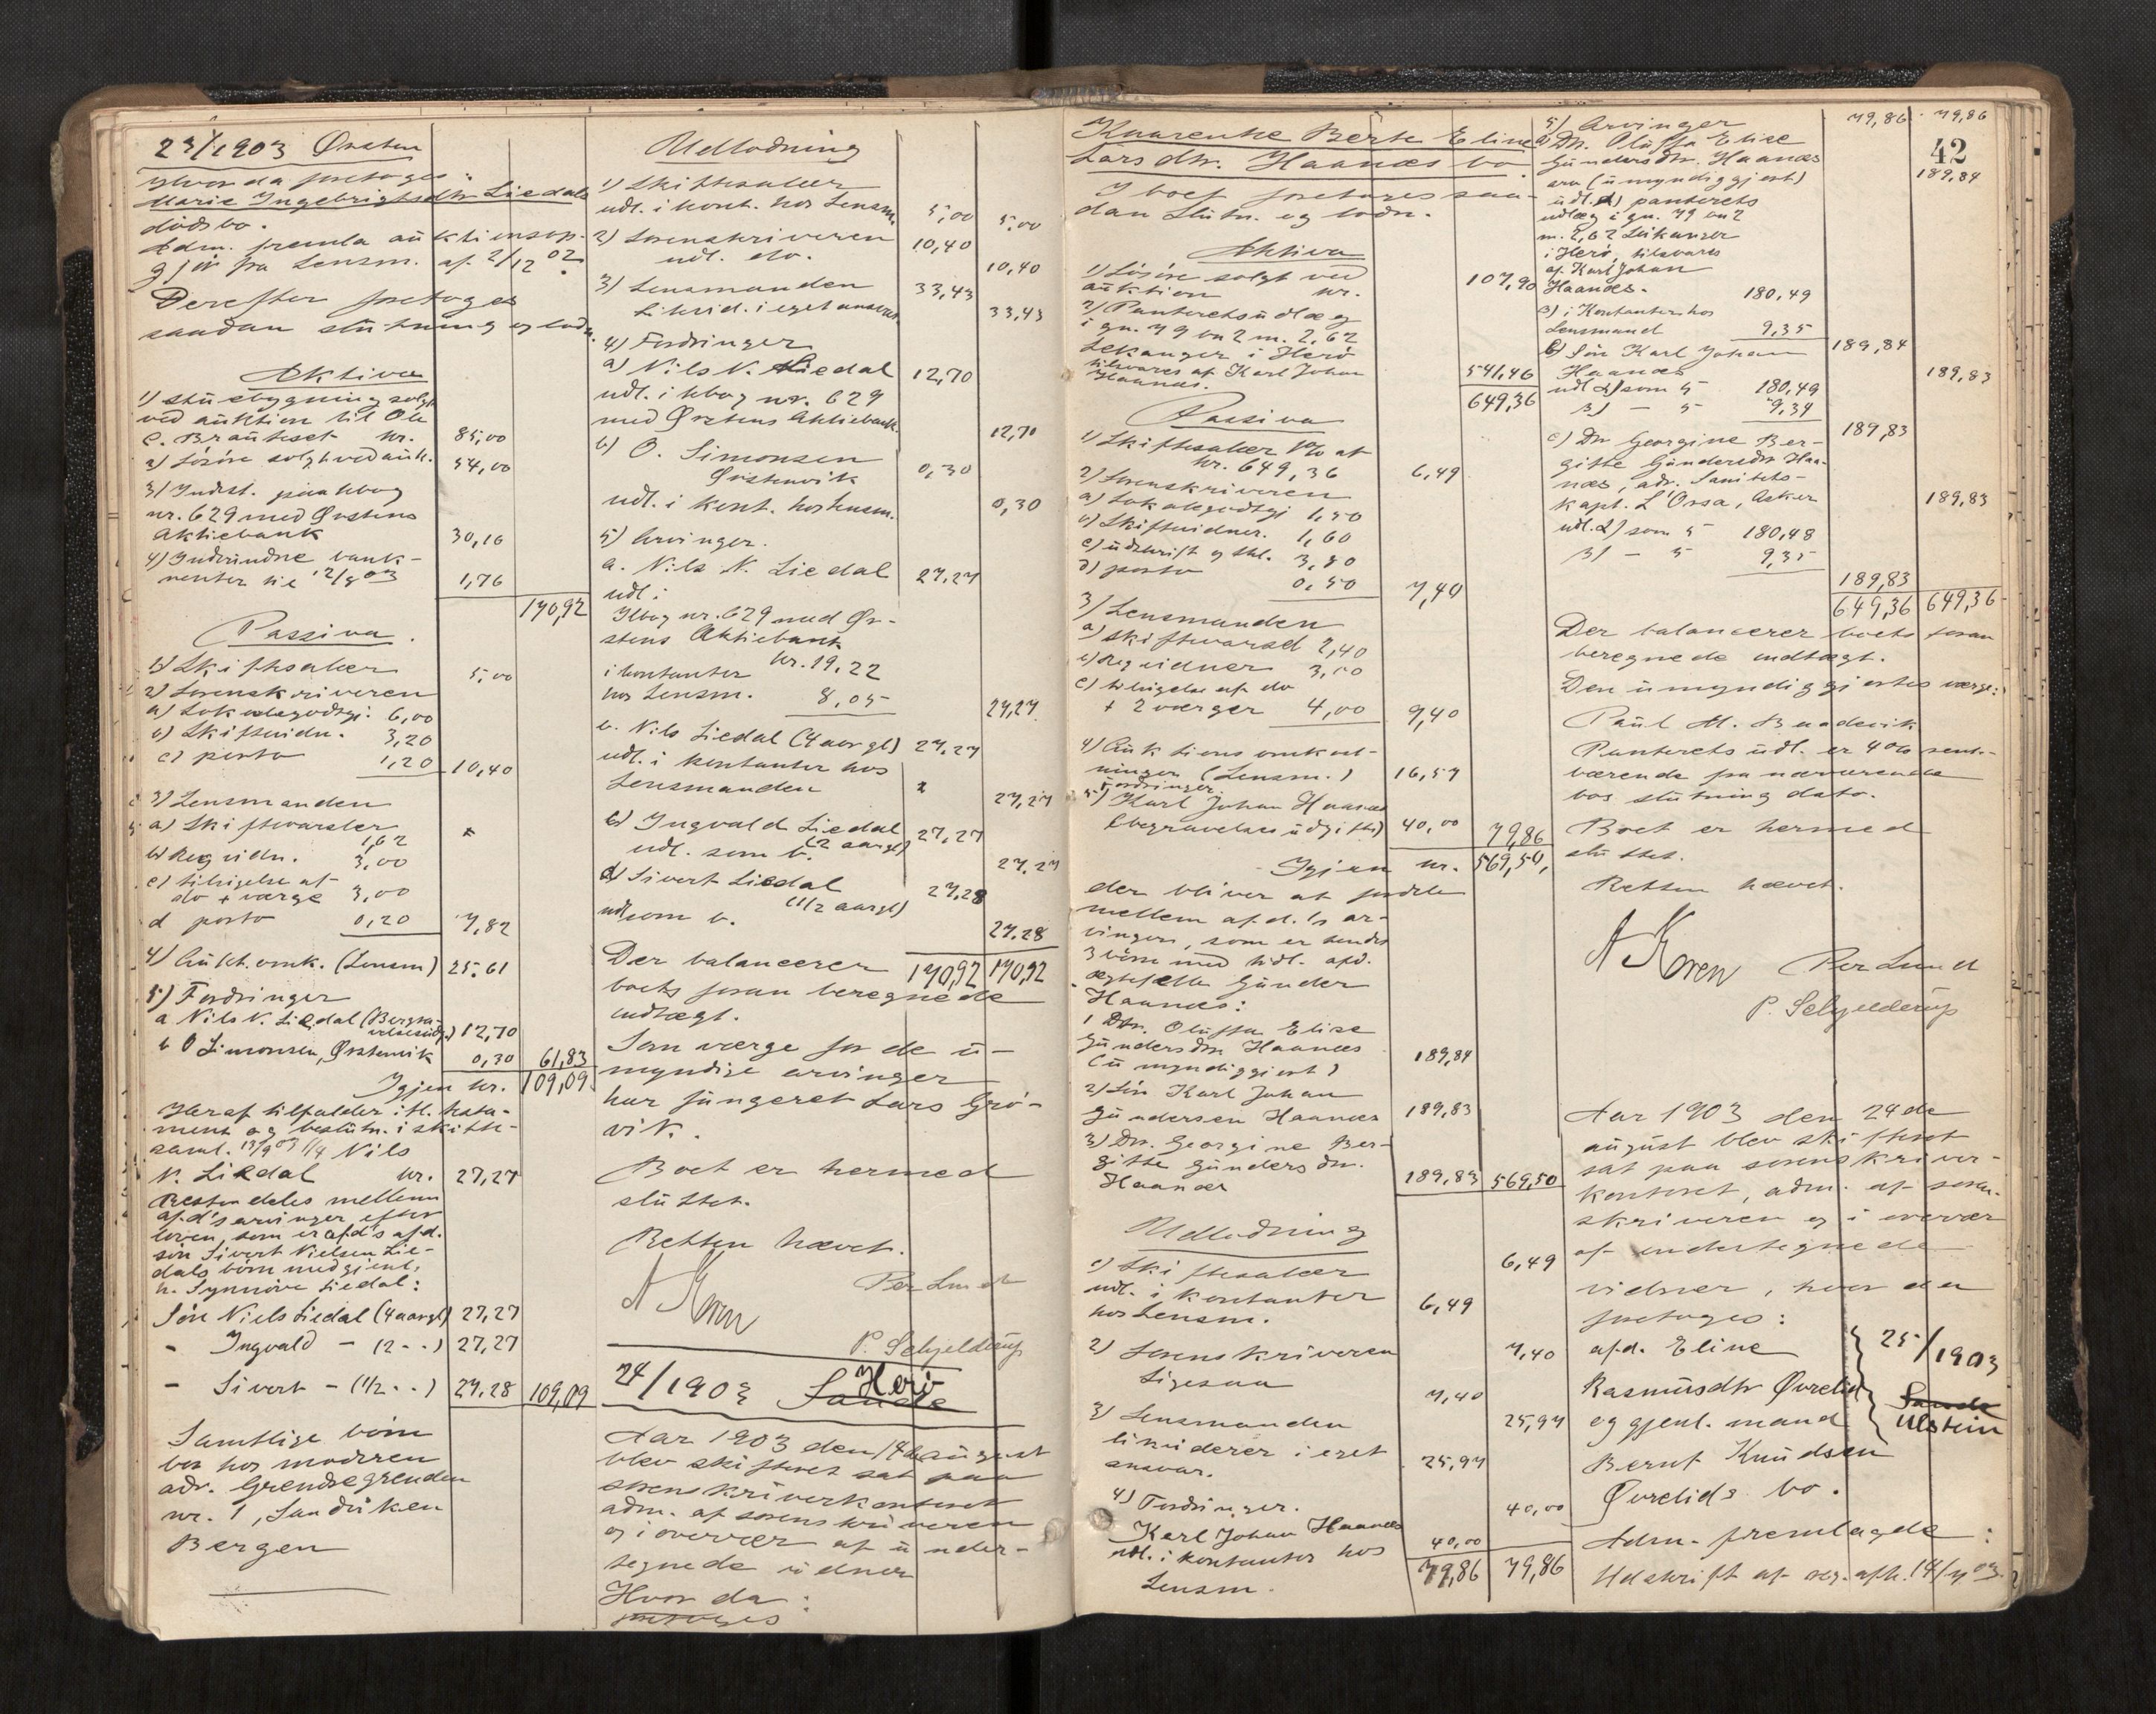 23/1903 Ørsten
Hvor da foretoges:
Marie Ingebrigtsdtr Liedals
dødsbo.
Adm. fremla auktionsop-
gjør fra Lensm. af 2/12 02.
Derefter foretoges
saadan slutning og lodn.
Aktiva
1) Stuebygning solgt
ved auktion til Ole
C. Brauteset kr. 85,00
2) Løsøre solgt ved auk. 54,00
3) Indest. paa kbog
nr. 629 med Ørstens
Aktiebank 30,16
4) Indvundne bank-
renter til 12/8 03 1,76
170,92
Passiva.
1) Skiftsaler 5,00
2) Sorenskriveren
a) Lokalegodtgj. 6,00
b) Skiftevidn. 3,20
c) porto 1,20 10,40
3) Lensmanden
a) Skiftevarsler 1,62
b) Reg. vidn. 3,00
c) tilsigelse af
do + værge 3,00
d porto 0,20 7,82
4) Aukt. omk. (Lensm) 25,61
5) Fordringer
a Nils N. Liedal (Begra-
velsesudg.) 12,70
b O Simonsen, Ørstenvik 0,30 61,83
Igjen kr. 109,09
Heraf tilfalder ifl. testa-
ment og beslutn. i skifte-
saml. 13/9 07 1/4 Nils
N. Liedal kr. 27,27
Resten deles mellem
afd's arvinger efter
loven, som er afd's afd.
søn Sivert Nielsen Lie-
dals børn med gjenl.
h. Synnøve Liedal:
Søn Niels Liedal (4 aargl) 27,27
- Ingvald - (2 - -) 27,27
- Sivert - (1/2 - -) 27,28 109,09
Samtlige børn
bor hos moderen
adr. Grendsegrenden
nr. 1, Sandviken
Bergen
Udlodning
1) Skiftesaler
udl. i kont. hos Lensm. 5,00 5,00
2) Sorenskriveren 10,40
udl. do. 10,40
3) Lensmanden 33,43
Likvid. i eget ansvar. 33,43
4) Fordringer
a) Nils N. Liedal 12,70
udl. i kbog nr. 629
med Ørstens Aktiebank. 12,70
b) O. Simonsen
Ørstenvik 0,30
udl. i kont. hos Lensm. 0,30
5) Arvinger.
a. Nils N. Liedal 27,27
udl. i
kbog nr. 629 med Ør-
stens Aktiebank
kr. 19,22
i kontanter
hos Lensm. 8,05 27,27
b. Nils Liedal (4 aargl) 27,27
udl. i kontanter hos
Lensmanden 27,27
c) Ingvald Liedal
(2 aargl) 27,27
udl. som b. 27,27
d) Sivert Liedal
(1/2 aargl) 27,28
udl som b. 27,28
Der balancerer 170,92 170,92
boets foran beregnede
indtægt.
Som værge for de u-
myndige arvinger
har fungeret Lars Grø-
vik.
Boet er hermed
sluttet.
Retten hævet.
A Koren Per Lund
P. Schjelderup
24/1903 Sande Herø
Aar 1903 den 14de august
blev skifteret sat paa
sorenskriverkontoret
adm. af sorenskriveren
og i overvær af under-
tegnede vidner
Hvor da:
foretoges
42
Knarenke Berte Eline
Larsdtr. Haanæs bo.
I boet foretoges saa-
dan slutn. og lodn.
Aktiva
1) Løsøre solgt ved
auktion kr. 107,90
2) Panteretsudlæg
i gn. 79 bn 2 m. 2,62
Lekanger i Herø
tilsvares af Karl Johan
Haanæs. 541,46
649,36
Passiva
1) Skiftesaler 1% af
kr. 649,36 6,49
2) Sorenskriveren
a) Lokalegodtgj 1,50
b) Skiftevidner. 1,60
c) udskrift og skl. 3,80
d) porto 0,50 7,40
3) Lensmanden
a) skiftevarsel 2,40
b) Reg vidner 3,00
c) tilsigelse af do
+ 2 værger 4,00 9,40
4) Auktionsomkost-
ninger (Lensm.) 16,57
5) Fordringer
Karl Johan Haanæs
(begravelsesudgifter) 40,00 79,86
Igjen kr. 569,50,
der bliver at fordele
mellem afd.'s ar-
vinger, som er hendes
3 børn med tidl. afd.
ægtefælle Gunder
Haanæs:
1 Dtr. Oluffa Elise
Gundersdtr Haanæs
(umyndiggjort) 189,84
2) Søn Karl Johan
Gundersen Haanæs 189,83
3) Dtr. Georgine Ber-
gitte Gundersdtr.
Haanæs 189,83 569,50
Udlodning
1) Skiftesaler 6,49
udl. i kontanter
hos Lensm. 6,49
2) Sorenskriveren 7,40
Ligesaa 7,40
3) Lensmanden 25,97
likviderer i eget
ansvar. 25,97
4) Fordringer. 40,00
Karl Johan Haanæs 40,00
udl. i kontanter hos
Lensm. 79,86 79,86
79,86 79,86
5) Arvinger
a) Dtr. Oluffa Elise
Gundersdtr. Haanæs
arv (umyndiggjort) 189,84
udl. α) panterets
udlæg i gn. 79 bn 2
m. 2,62 Leikanger
i Herø, tilsvares
af Karl Johan
Haanæs. 180,49
β) i Kontanter hos
Lensmand 9,35 189,84
b) Søn Karl Johan
Haanæs 189,83
udl α) som 5 180,49
β) - 5 9,34 189,83
c) Dtr Georgine Ber-
gitte Gundersdtr Haa-
næs, adr. Sanitets-
kapt. L'Orsa, Asker 189,83
udl. α) som 5 180,48
β) - 5 9,35
189,83
649,36 649,36
Der balancerer boets foran
beregnede indtægt.
Den umyndiggjortes værge:
Paul M. Baadevik
Panterets udl. er 4% rente-
bærende fra nærværende
bos slutning dato.
Boet er hermed
sluttet.
Retten hævet.
A Koren Per Lund
P. Schjelderup
Aar 1903 den 24de
august blev skifteret
sat paa sorenskriver-
kontoret, adm. af soren-
skriveren og i overvær
af undertegnede
vidner, hvor da
foretoges:
afd. Eline
Rasmusdtr Øvrelid
og gjenl. mand
Bernt Knudsen
Øvrelids bo.
25/1903
Sande
Ulstein
Adm. fremlagde:
Udskrift af reg. afh. 14/7 03.